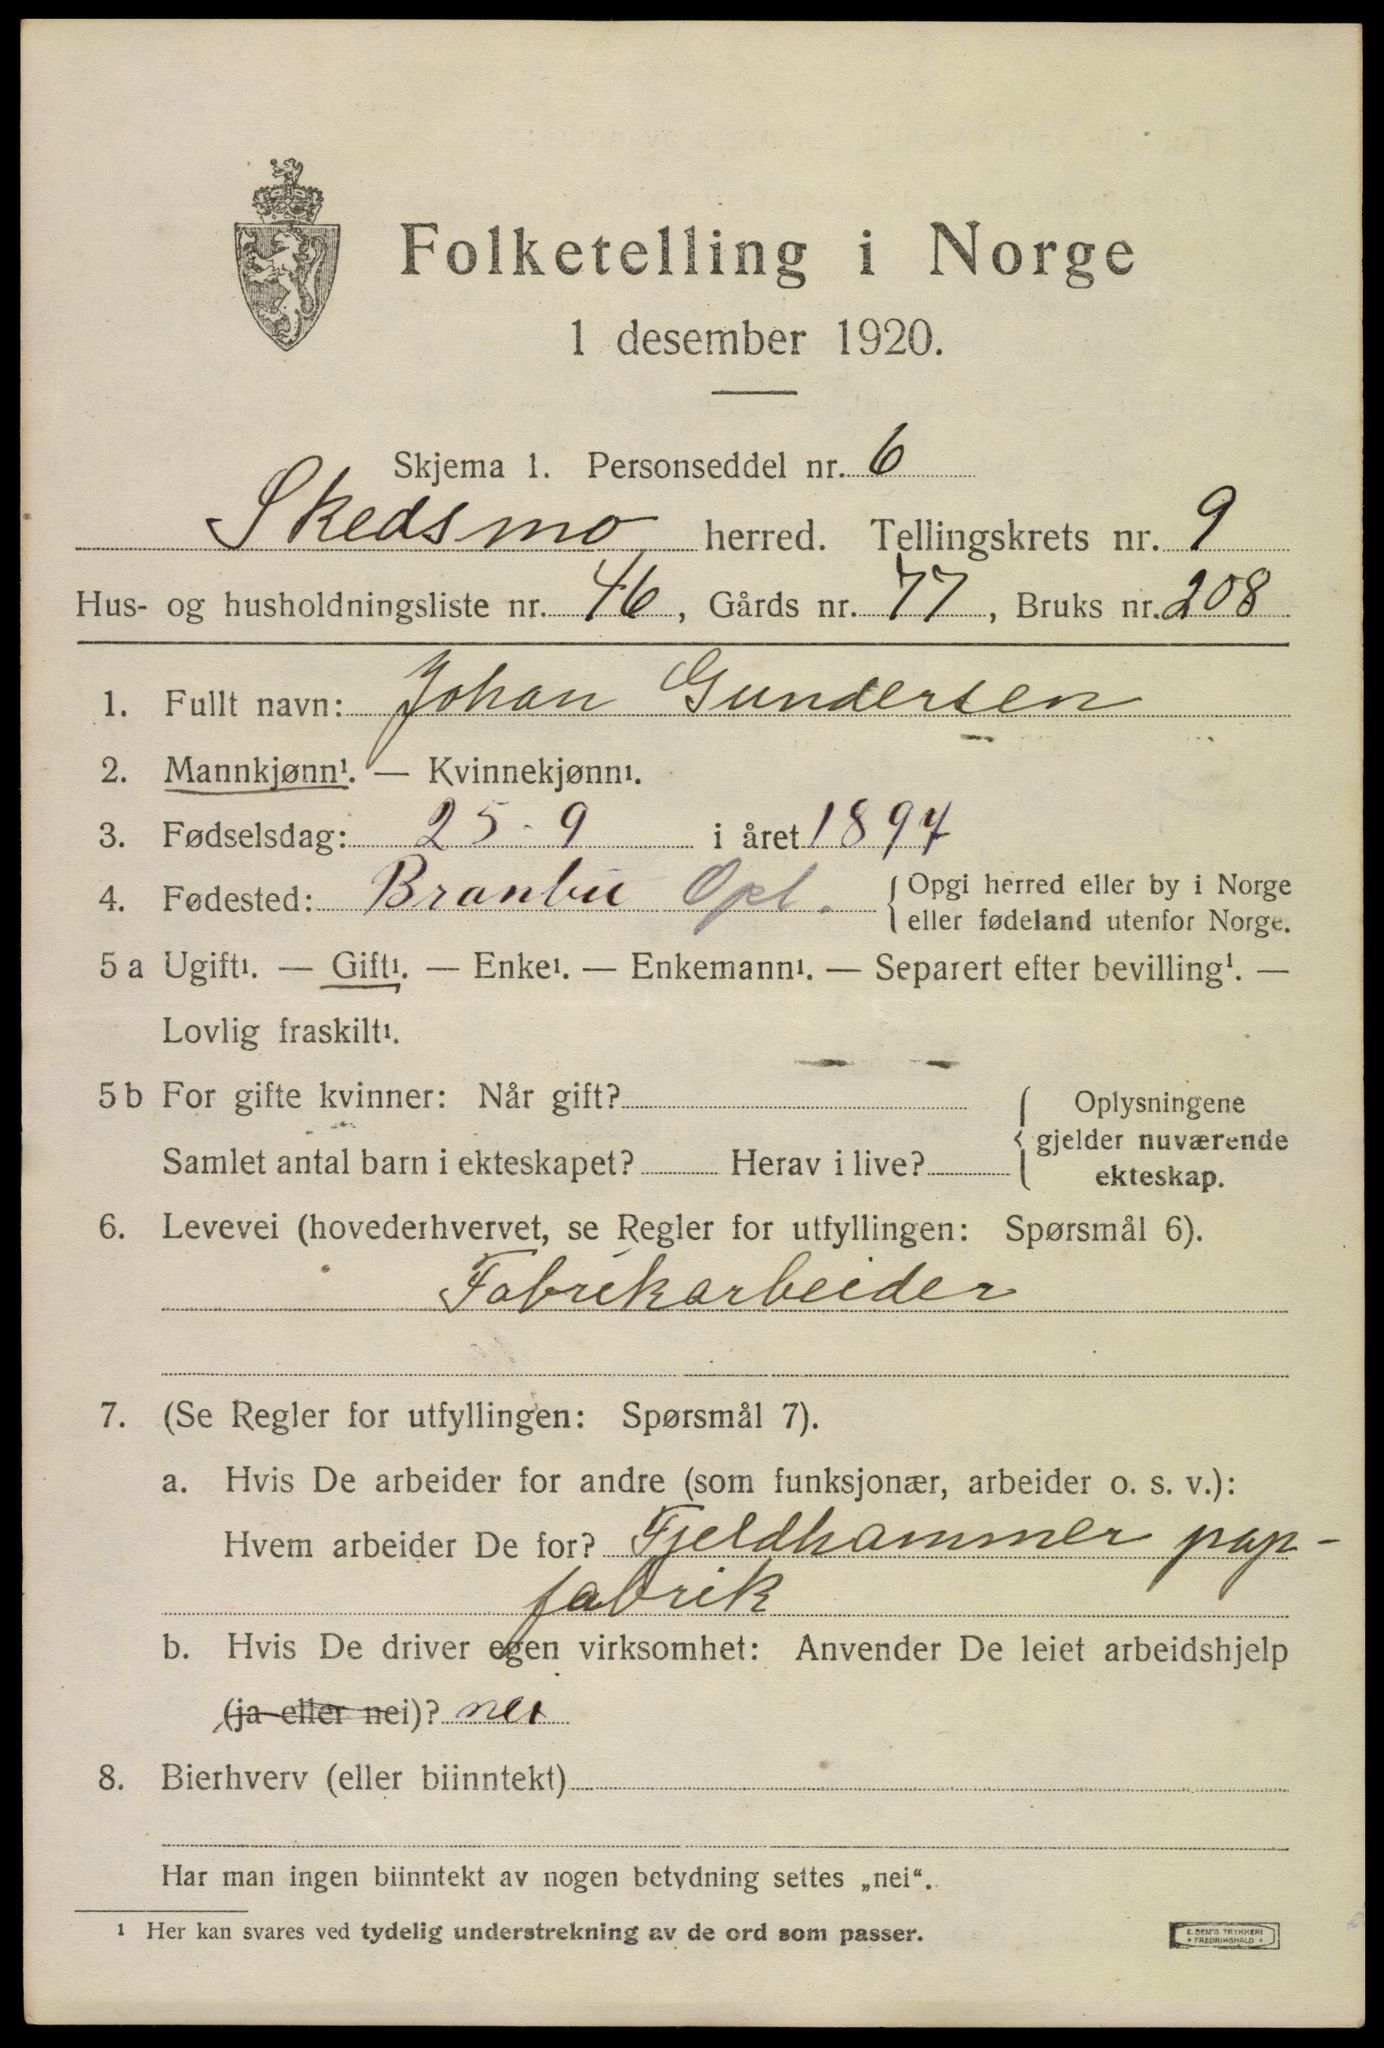 Folketelling i Norge
1 desember 1920.
Skjema 1. Personseddel nr. 6
Skedsmo herred. Tellingskrets nr. 9
Hus- og husholdningsliste nr. 46, Gårds nr. 77, Bruks nr. 208
1. Fullt navn: Johan Gundersen
2. Mannkjønn¹. — Kvinnekjønn¹.
3. Fødselsdag: 25-9 i året 1894
4. Fødested: Branbu Opl. {Opgi herred eller by i Norge
eller fødeland utenfor Norge.
5 a Ugift¹. — Gift¹. — Enke¹. — Enkemann¹. — Separert efter bevilling¹. —
Lovlig fraskilt¹.
5 b For gifte kvinner: Når gift?
Samlet antal barn i ekteskapet? Herav i live?
{Oplysningene
gjelder nuværende
ekteskap.
6. Levevei (hovederhvervet, se Regler for utfyllingen: Spørsmål 6).
Fabrikarbeider
7. (Se Regler for utfyllingen: Spørsmål 7).
a. Hvis De arbeider for andre (som funksjonær, arbeider o. s. v.):
Hvem arbeider De for? Fjeldhammer pap-
fabrik
b. Hvis De driver egen virksomhet: Anvender De leiet arbeidshjelp
(ja eller nei)? nei
8. Bierhverv (eller biinntekt)
Har man ingen biinntekt av nogen betydning settes „nei“.
¹ Her kan svares ved tydelig understrekning av de ord som passer.
E. SEM'S TRYKKERI
* FREDRIKSHALD *